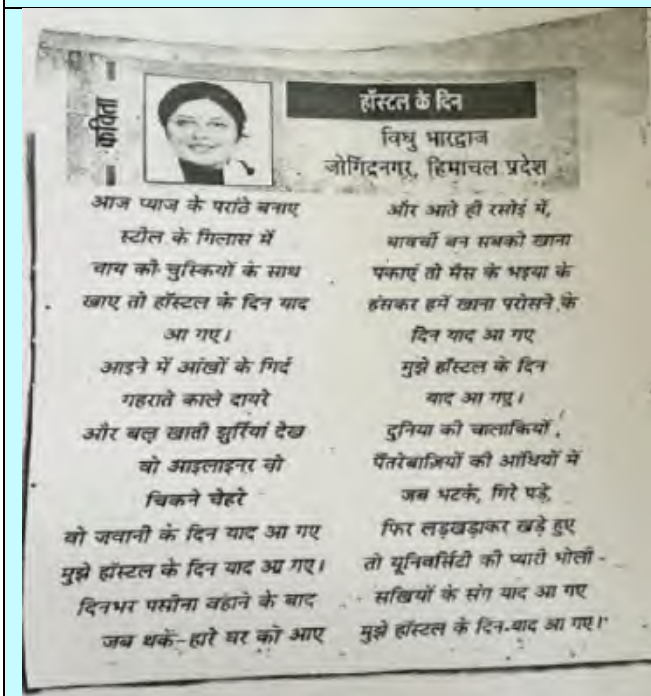 कविता
हॉस्टल के दिन
विधु भारद्वाज
जोगिंद्रनगर, हिमाचल प्रदेश
आज प्याज के परांठे बनाए
स्टील के गिलास में
चाय की चुस्कियों के साथ
खाए तो हॉस्टल के दिन याद
आ गए।
आइने में आंखों के गिर्द
गहराते काले दायरे
और बल खाती झुर्रियां देख
वो आइलाइनर वो
चिकने चेहरे
वो जवानी के दिन याद आ गए
मुझे हॉस्टल के दिन याद आ गए।
दिनभर पसीना बहाने के बाद
जब थके-हारे घर को आए
और आते ही रसोई में,
बावर्ची बन सबको खाना
पकाएं तो मैस के भइया के
हंसकर हमें खाना परोसने के
दिन याद आ गए
मुझे हॉस्टल के दिन
याद आ गए।
दुनिया की चालाकियों,
पैंतरेबाज़ियों की आंधियों में
जब भटके, गिरे पड़े,
फिर लड़खड़ाकर खड़े हुए
तो यूनिवर्सिटी की प्यारी भोली-
सखियों के संग याद आ गए
मुझे हॉस्टल के दिन-याद आ गए।